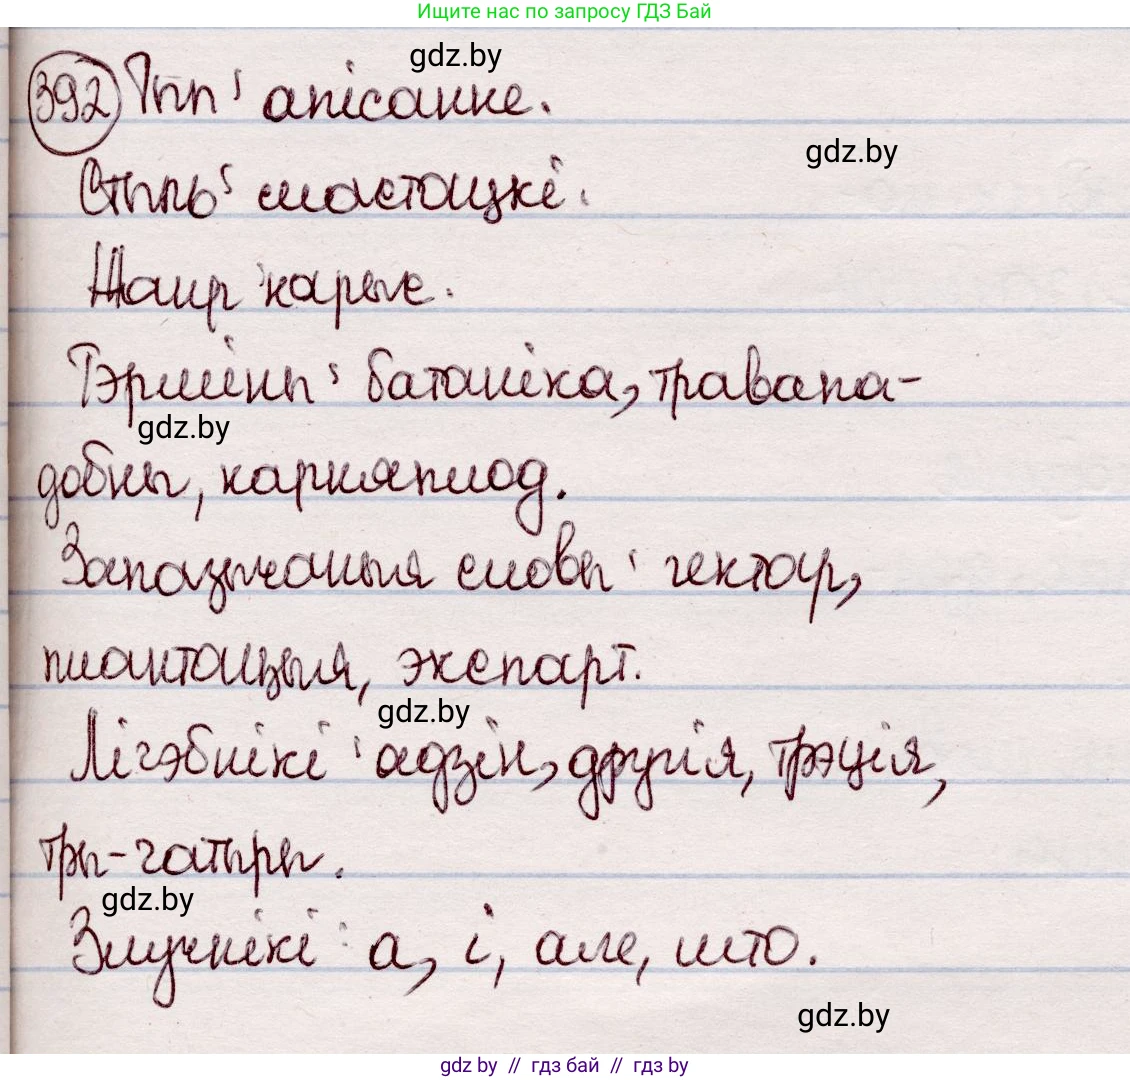 Ищите нас по запросу ГДЗ Бай
gdz.by
392 Тып: апісанне.
gdz.by
Стыль: мастацкі.
Жанр: нарыс.
Тэрміны: батаніка, травапа-
gdz.by
добны, карняплод.
Запазычаныя словы: гектар,
плантацыя, экспарт.
gdz.by
Лічэбнікі: адзін, другія, трэція,
тры-чатыры.
gdz.by
Злучнікі: а, і, але, што.
gdz.by
gdz by // гдз бай // gdz by